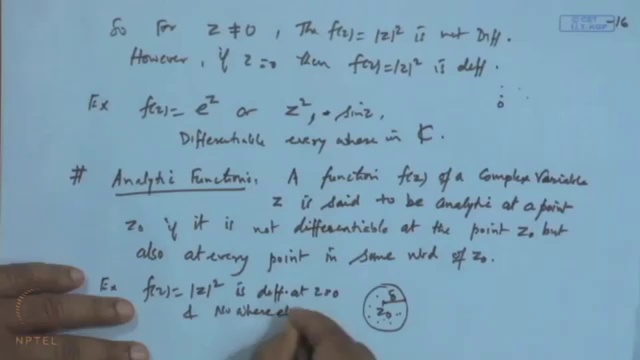 So For z ≠ 0, The f(z) = |z|² is not Diff.
However, if z = 0 then f(z) = |z|² is diff.
Ex f(z) = e^z or z², sinz
Differentiable every where in ℂ.
# Analytic Function. A function f(z) of a Complex Variable
z is said to be analytic at a point
z₀ if it is not differentiable at the point z₀ but
also at every point in some nbd of z₀.
Ex f(z) = |z|² is diff. at z=0
& No where el
δ
z₀
0
© CET
I.I.T. KGP
-16
NPTEL